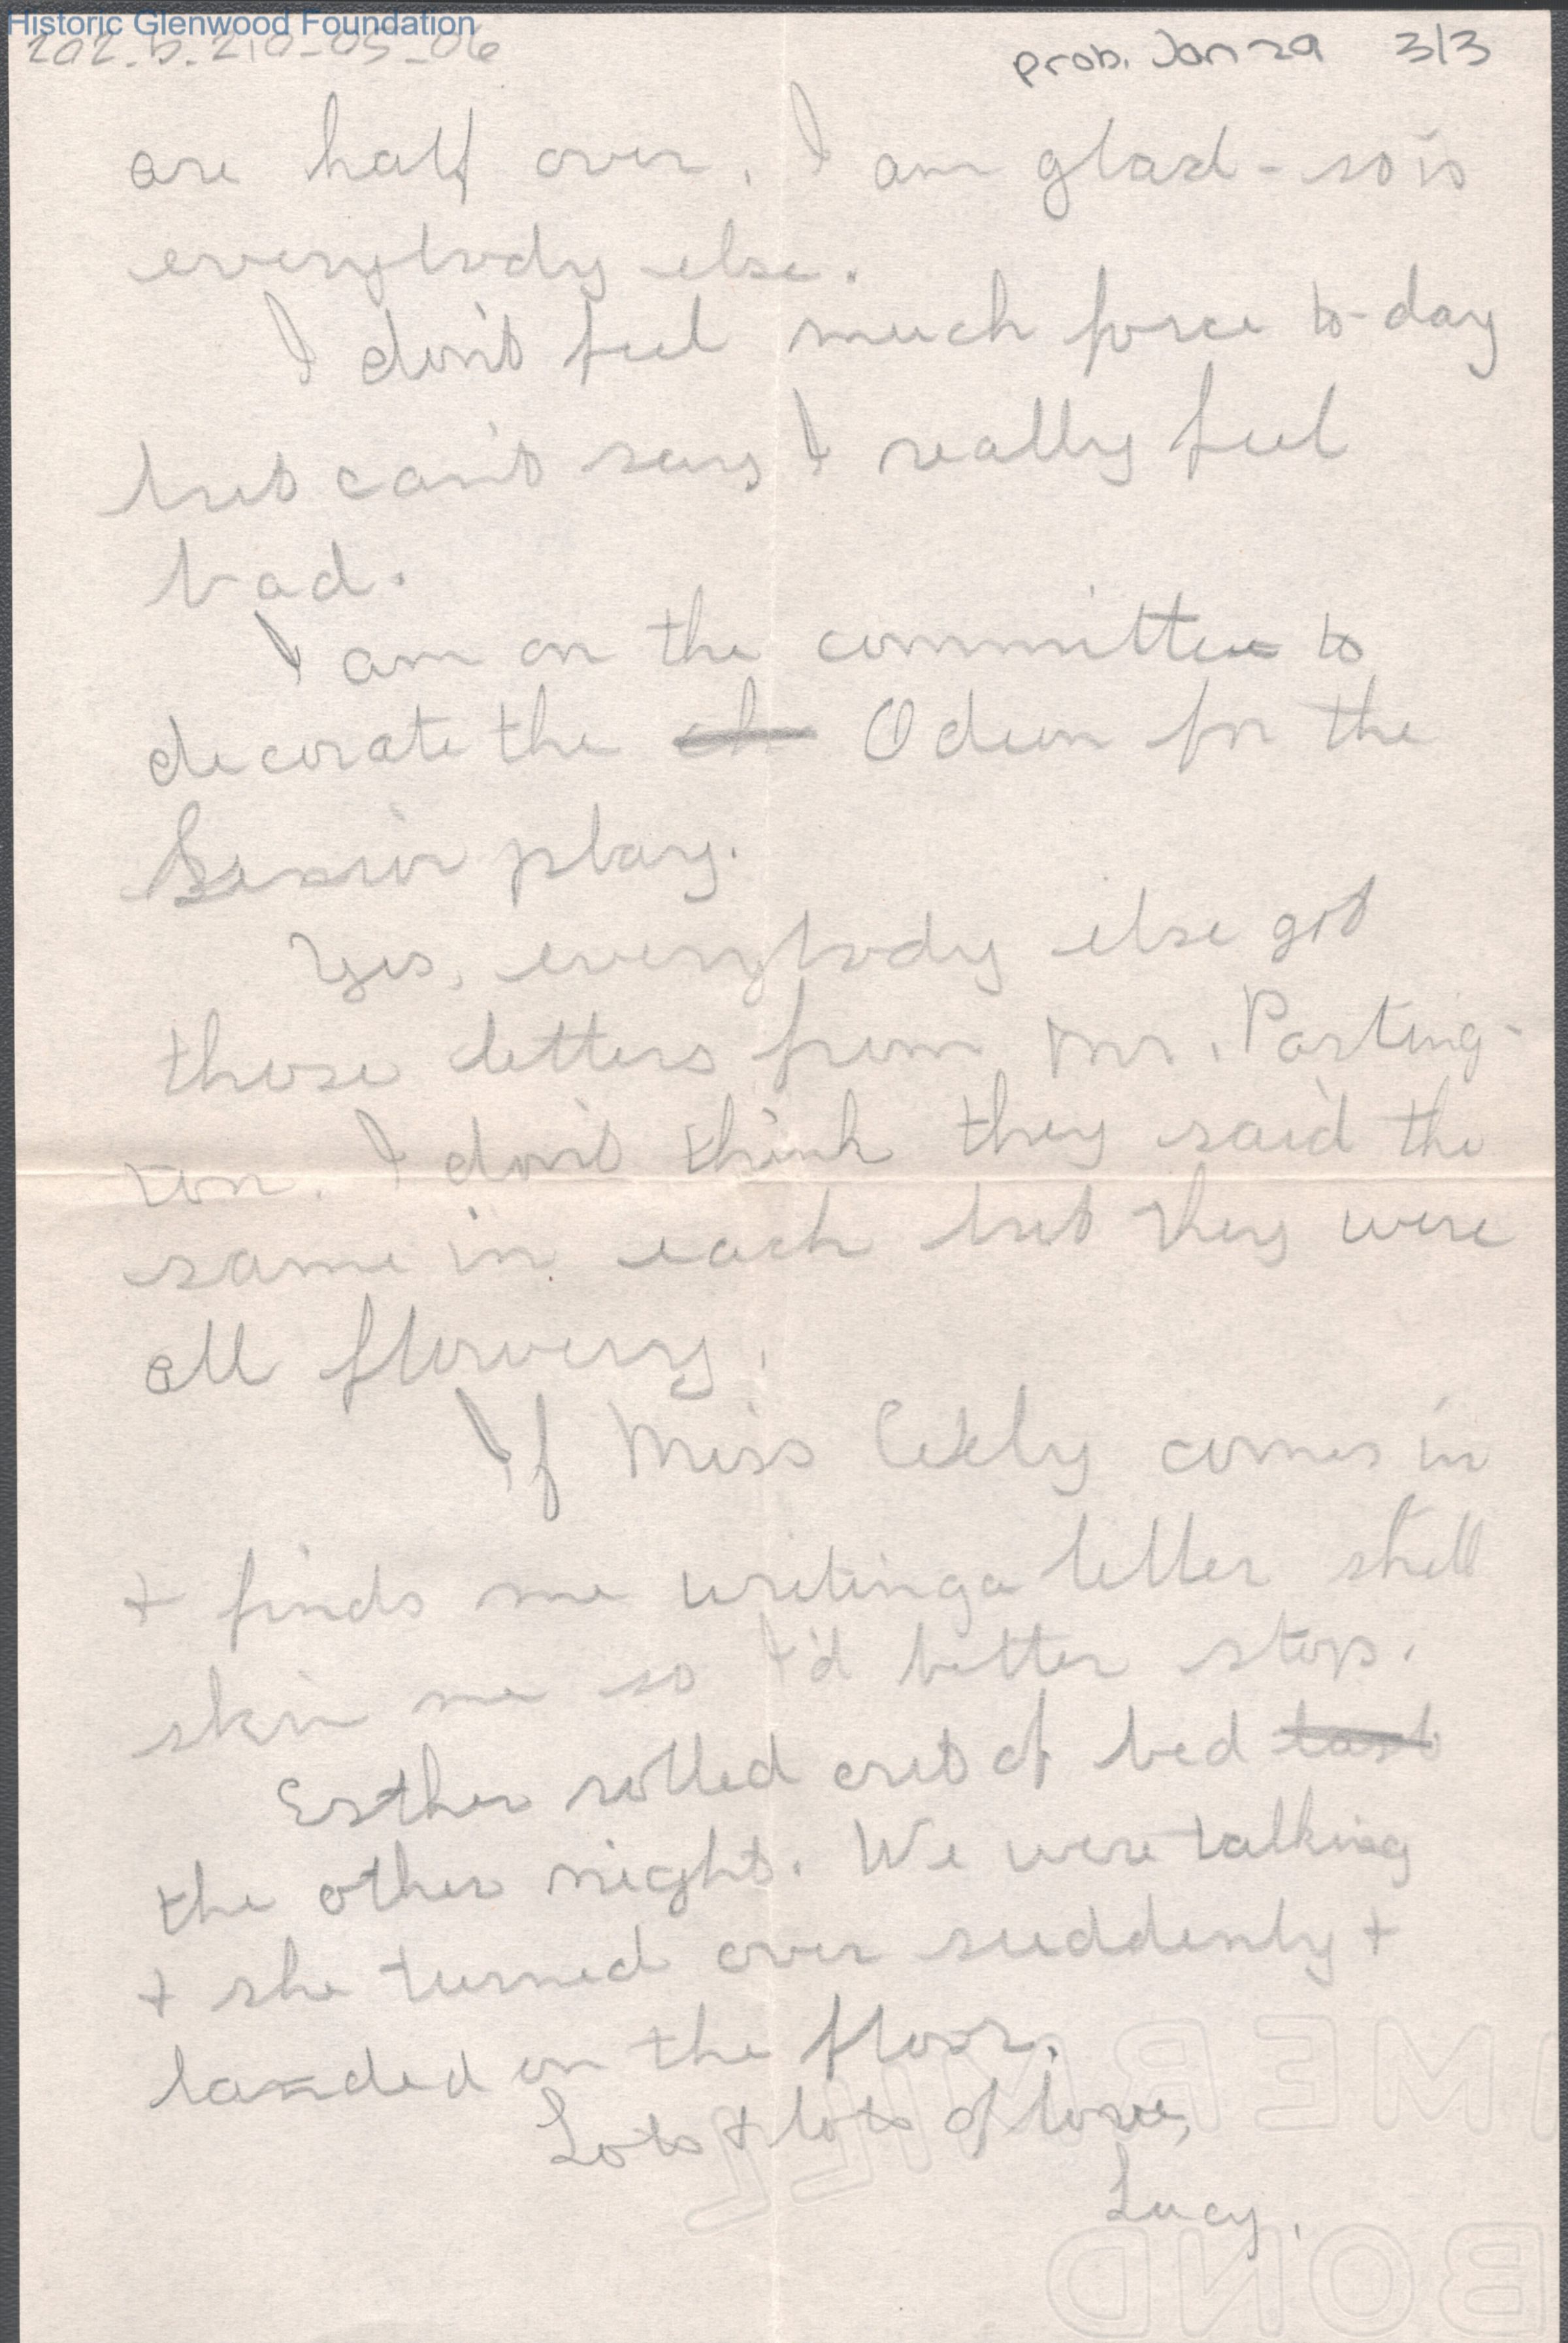 Historic Glenwood Foundation
202.b.2.0-05-06 prob. Jan 29 3/3
are half over. I am glad - so is
everybody else.
I don't feel much force to-day
but can't say I really feel
bad.
I am on the committee to
decorate the ch Odeon for the
Senior play.
Yes, everybody else got
those letters from Mr. Parting-
ton. I don't think they said the
same in each but they were
all flowery.
If Miss comes in
+ finds me writing a letter she'll
skin me so I'd better stop.
Esther rolled out of bed last
the other night. We were talking
+ she turned over suddenly +
landed on the floor.
Lots + lots of love,
Lucy.
BOND